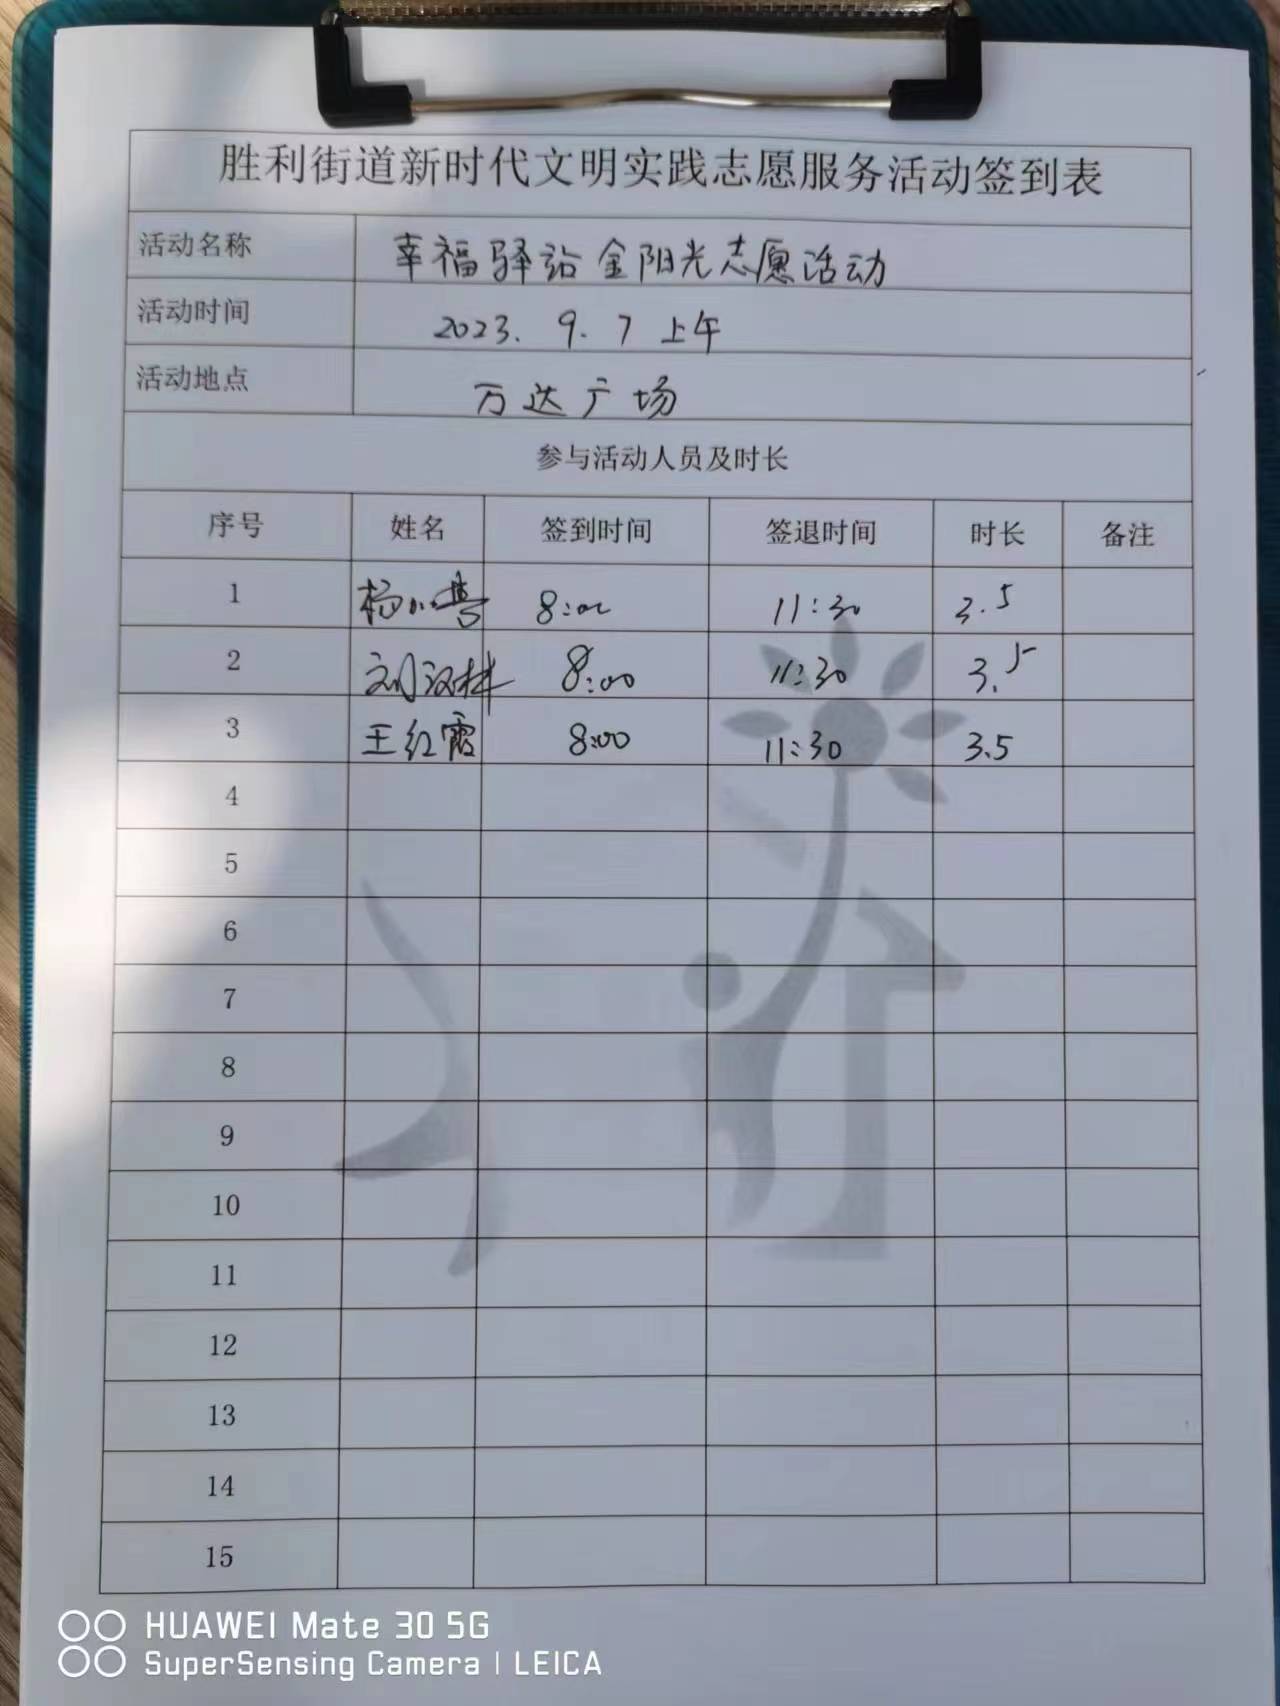 胜利街道新时代文明实践志愿服务活动签到表
活动名称 幸福驿站金阳光志愿活动
活动时间 2023.9.7上午
活动地点 万达广场
参与活动人员及时长
序号 姓名 签到时间 签退时间 时长 备注
1 杨 8:00 11:30 3.5
2 刘汉林 8:00 11:30 3.5
3 王红霞 8:00 11:30 3.5
4
5
6
7
8
9
10
11
12
13
14
15
HUAWEI Mate 30 5G
SuperSensing Camera | LEICA